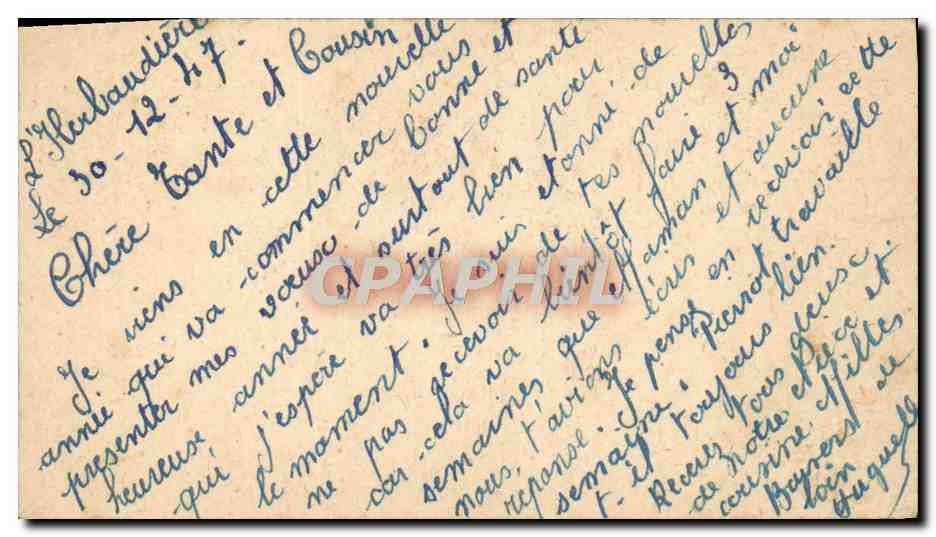 L'Herbaudière
Le 30-12-47.
Chère Tante et Cousin
Je viens en cette nouvelle
année qui va commencer vous
presenter mes voeux de bonne et
heureuse année et surtout de santé
qui j'espère va très bien pour
le moment. Je suis étonné de
ne pas recevoir de tes nouvelles
car cela va bientôt faire 3
semaines que Maman et moi
nous t'avions écris et aucune
reponse. Je pense en recevoir cette
semaine. Pierrot travaille
t-il toujours bien.
Recevez tous deux
de notre et
cousine Milles
Baisers de
loin
Huguette
CPAPHIL